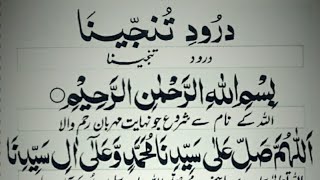 درُود تُنجّینَا
درود تنجینا
بِسْمِ اللهِ الرَّحْمٰنِ الرَّحِیْمِ
اللہ کے نام سے شروع جو نہایت مہربان رحم والا
اَللّٰهُمَّ صَلِّ عَلٰى سَیِّدِنَا مُحَمَّدٍ وَّعَلٰٓى اٰلِ سَیِّدِنَا